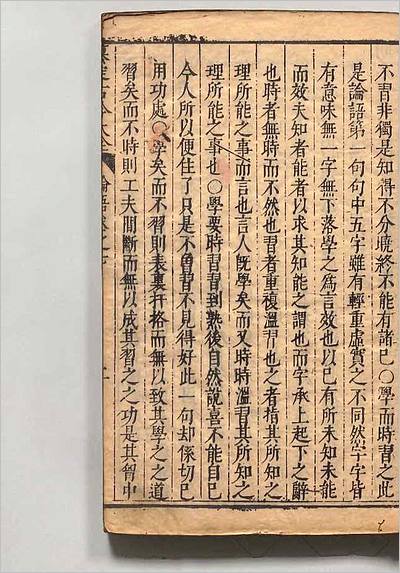 不習非獨是知得不分曉終不能有諸已○學而時習之此
是論語第一句句中五字雖有輕重虛實之不同然字字皆
有意味無一字無下落學之為言效也以已有所未知未能
而效夫知者能者以求其知能之謂也而字承上起下之辭
也時者無時而不然也習者重複溫習也之者指其所知之
理所能之事而言也言人既學矣而又時時溫習其所知之
理所能之事也○學要時習習到熟後自然說喜不能自已
今人所以便住了只是不曾習不見得好此一句却係切已
用功處○學矣而不習則表裏扞格而無以致其學之之道
習矣而不時則工夫間斷而無以成其習之之功是其胷中